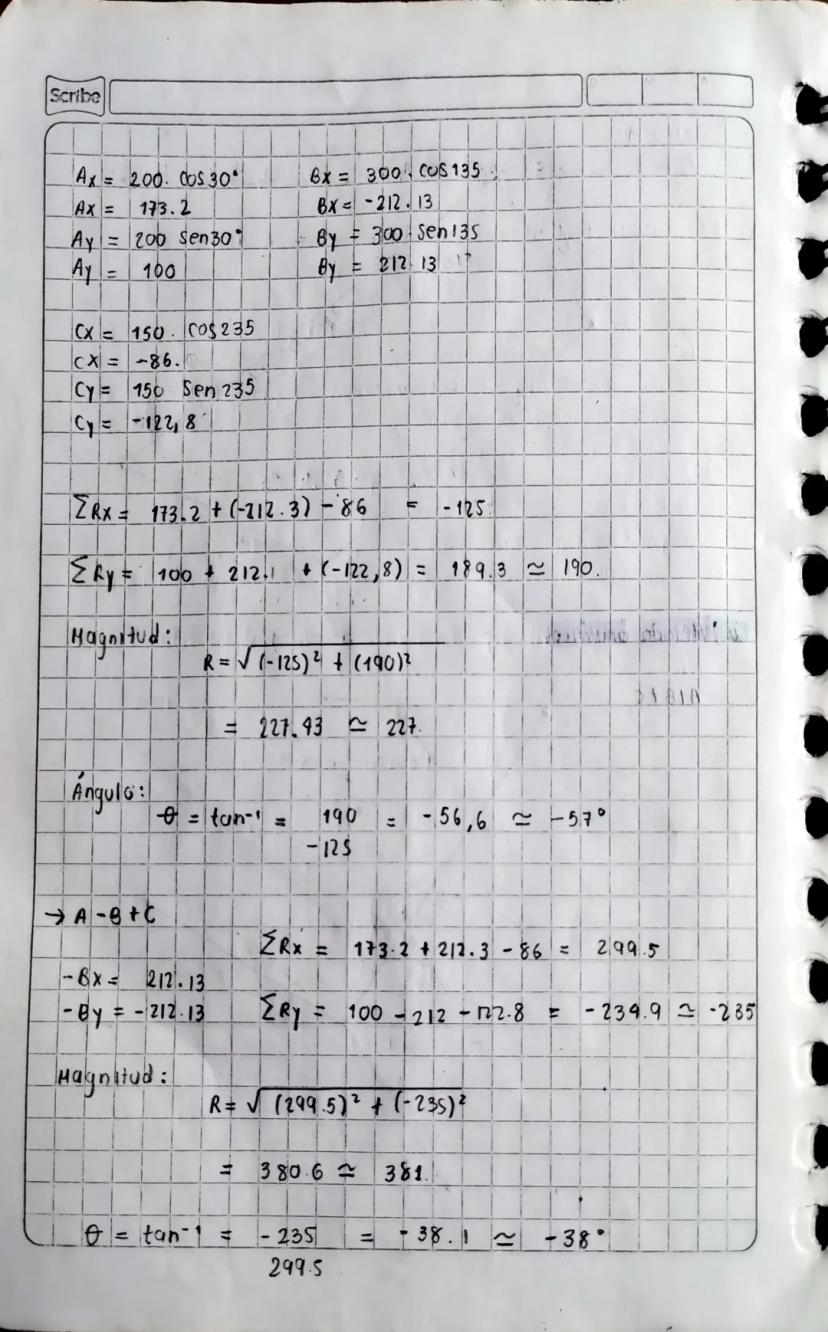 Scribe
Ax = 200. Cos30° Bx = 300. Cos135
Ax = 173.2 Bx = -212.13
Ay = 200 Sen30° By = 300 Sen135
Ay = 100 By = 212 13
Cx = 150. Cos235
Cx = -86.
Cy = 150 Sen 235
Cy = -122,8
ΣRx = 173.2 + (-212.3) - 86 = -125
ΣRy = 100 + 212.1 + (-122,8) = 189.3 ≃ 190.
Magnitud:
R = √(-125)² + (190)²
= 227.43 ≃ 227.
Ángulo:
θ = tan⁻¹ = 190 = -56,6 ≃ -57°
-125
→ A - B + C
ΣRx = 173.2 + 212.3 - 86 = 299.5
-Bx = 212.13
-By = -212.13 ΣRy = 100 - 212 - 122.8 = -234.9 ≃ -235
Magnitud:
R = √(299.5)² + (-235)²
= 380.6 ≃ 381.
θ = tan⁻¹ = -235 = -38.1 ≃ -38°
299.5